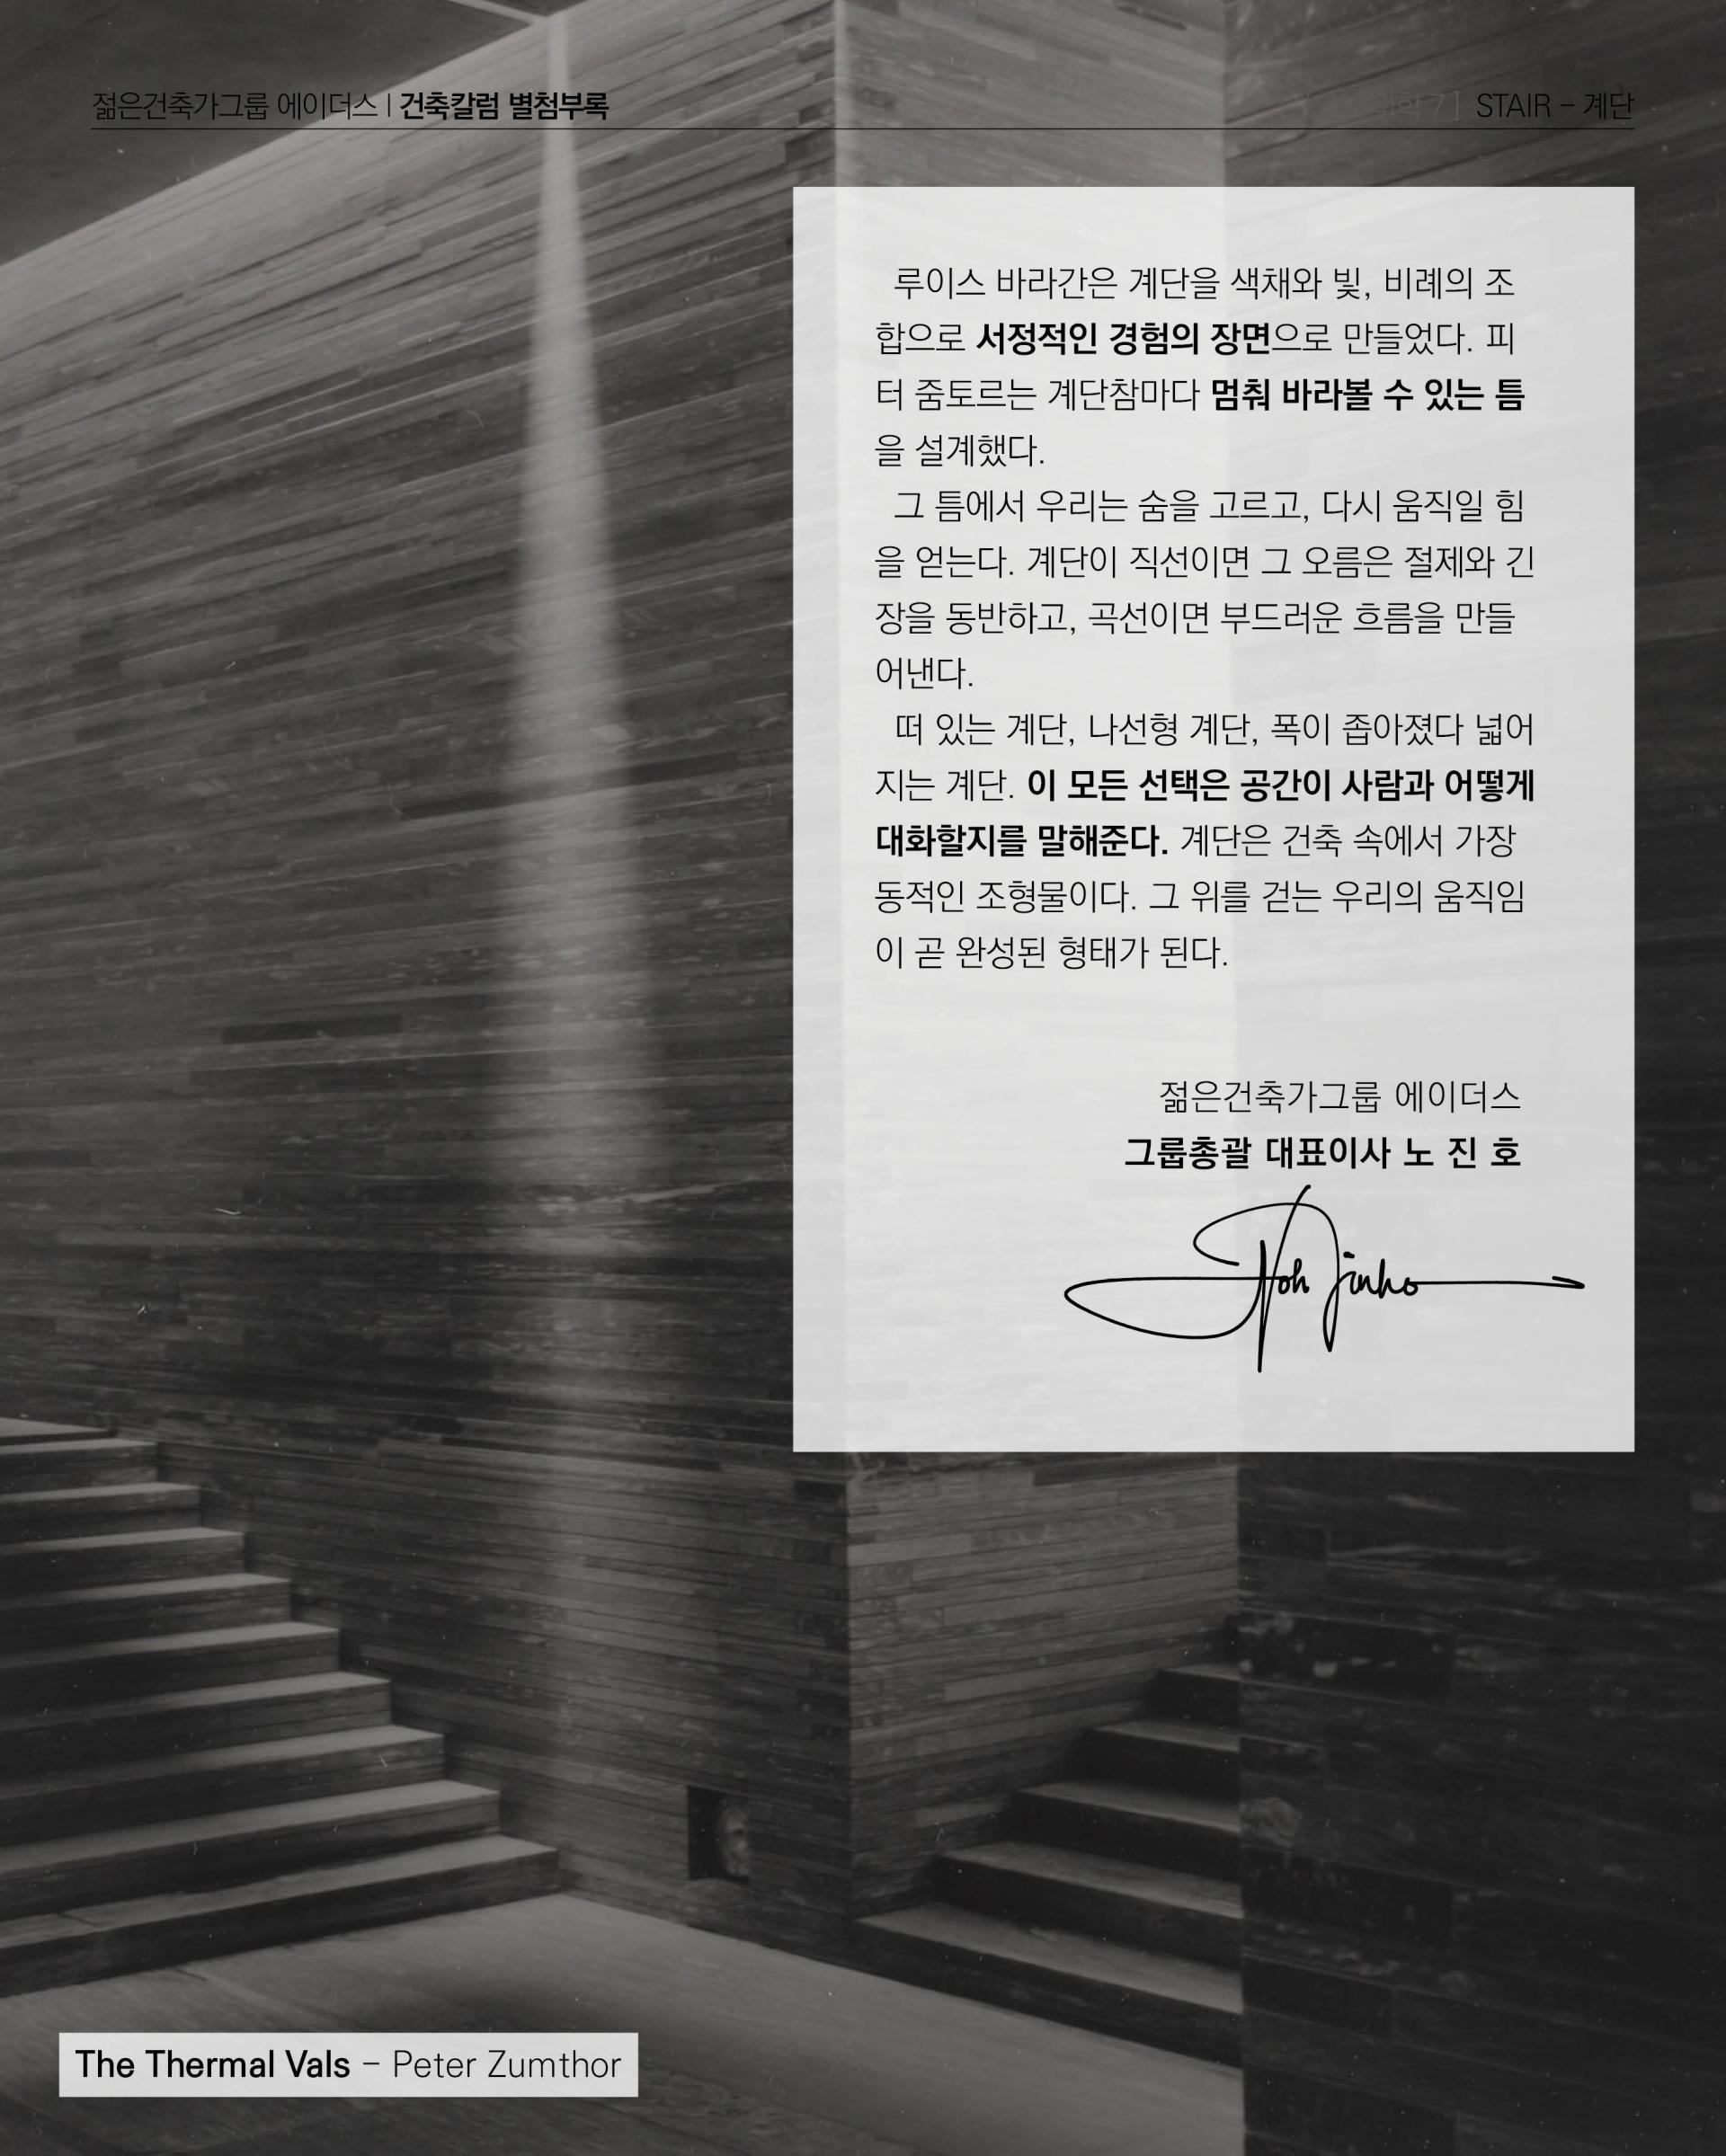 젊은건축가그룹 에이더스 | 건축칼럼 별첨부록
7] STAIR – 계단
루이스 바라간은 계단을 색채와 빛, 비례의 조
합으로 서정적인 경험의 장면으로 만들었다. 피
터 줌토르는 계단참마다 멈춰 바라볼 수 있는 틈
을 설계했다.
그 틈에서 우리는 숨을 고르고, 다시 움직일 힘
을 얻는다. 계단이 직선이면 그 오름은 절제와 긴
장을 동반하고, 곡선이면 부드러운 흐름을 만들
어낸다.
떠 있는 계단, 나선형 계단, 폭이 좁아졌다 넓어
지는 계단. 이 모든 선택은 공간이 사람과 어떻게
대화할지를 말해준다. 계단은 건축 속에서 가장
동적인 조형물이다. 그 위를 걷는 우리의 움직임
이 곧 완성된 형태가 된다.
젊은건축가그룹 에이더스
그룹총괄 대표이사 노 진 호
Noh Jinho
The Thermal Vals – Peter Zumthor